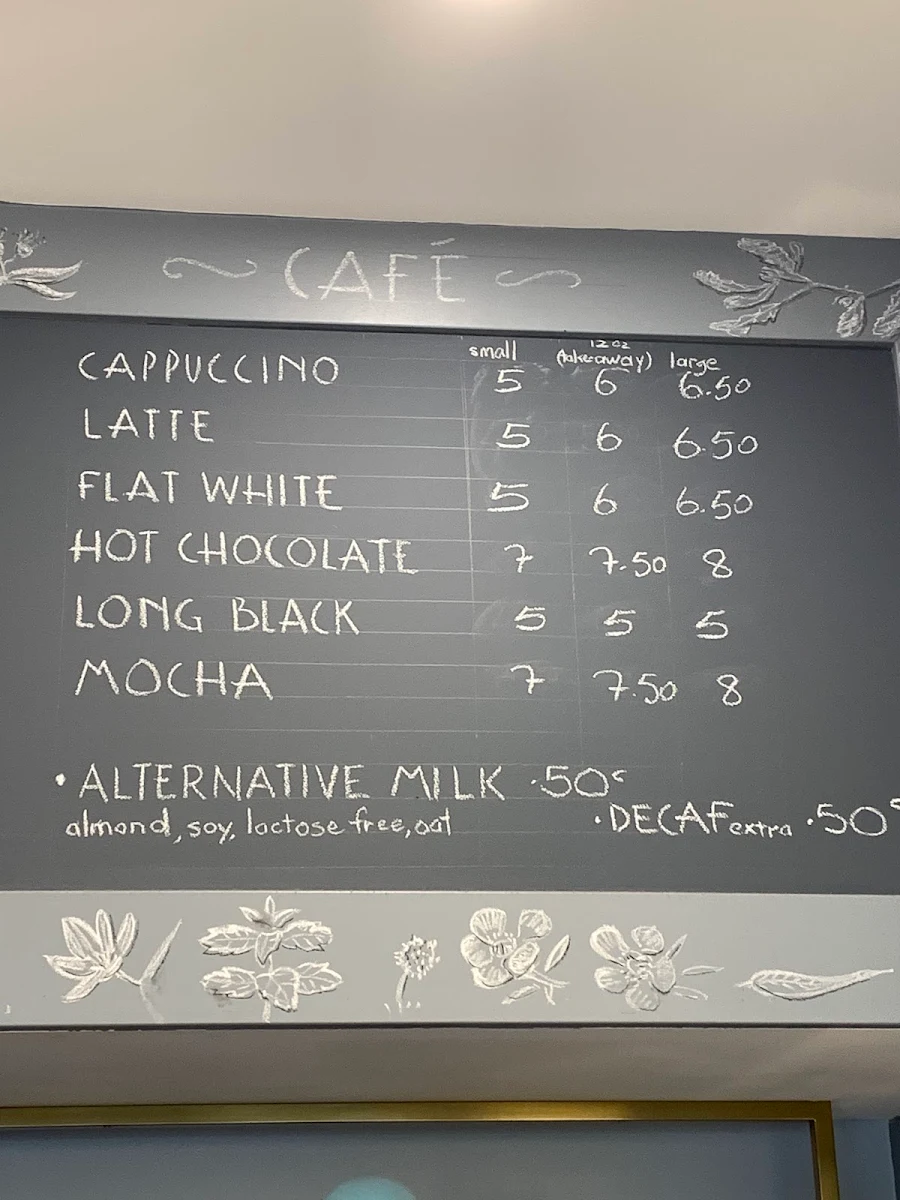 CAFÉ
small 12oz (takeaway) large
CAPPUCCINO 5 6 6.50
LATTE 5 6 6.50
FLAT WHITE 5 6 6.50
HOT CHOCOLATE 7 7.50 8
LONG BLACK 5 5 5
MOCHA 7 7.50 8
• ALTERNATIVE MILK ·50c
almond, soy, lactose free, oat
· DECAF extra ·50c